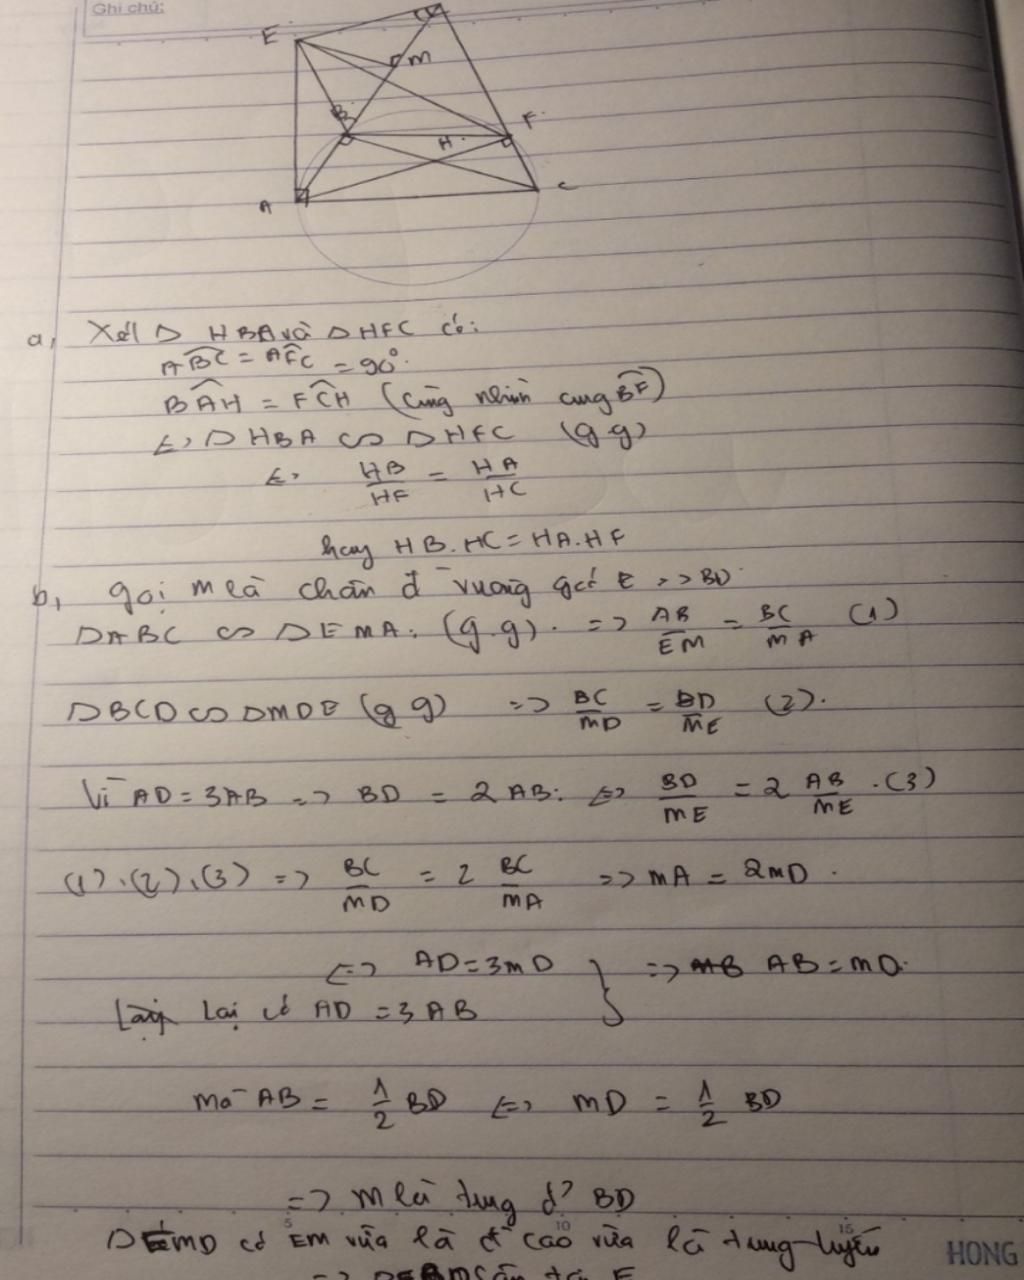 Ghi chú:
E
M
B
F
H
A
C
a, Xét Δ HBA và Δ HFC có:
ABC = AFC = 90°.
BAH = FCH (cùng nhìn cung BF)
=> Δ HBA ∽ Δ HFC (g g)
=> HB/HF = HA/HC
hay HB.HC = HA.HF
b, gọi M là chân đ vuông góc E -> BD
ΔABC ∽ ΔEMA. (g.g). => AB/EM = BC/MA (1)
ΔBCD ∽ ΔMDE (g g) => BC/MD = BD/ME (2).
Vì AD = 3AB => BD = 2 AB. <=> BD/ME = 2 AB/ME .(3)
(1),(2),(3) => BC/MD = 2 BC/MA => MA = 2MD.
<=> AD = 3MD } => AB = MD.
lại có AD = 3 AB
mà AB = 1/2 BD <=> MD = 1/2 BD
=> M là tung đ? BD
có EM vừa là đ cao vừa là trung tuyến
5 10 15
HONG